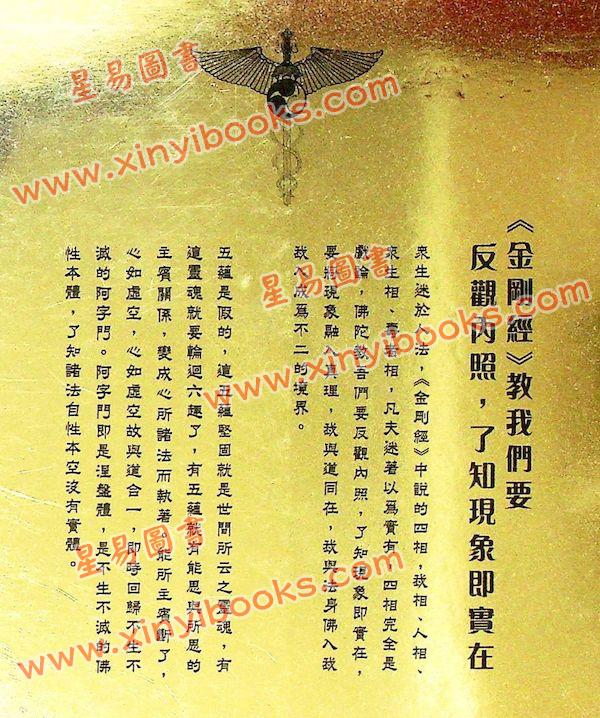 《金剛經》教我們要
反觀內照，了知現象即實在
衆生迷於人法，《金剛經》中說的四相，我相、人相、
衆生相、壽者相，凡夫迷著以爲實有，四相完全是
戲論，佛陀教吾們要反觀內照，了知現象即實在，
要將現象融入真理，我與道同在，我與法身佛入我
我入成爲不二的境界。
五蘊是假的，這五蘊堅固就是世間所云之靈魂，有
這靈魂就要輪迴六趣了，有五蘊就有能思與所思的
主賓關係，變成心所諸法而執著。能所主賓斷了，
心如虛空，心如虛空故與道合一，即時回歸不生不
滅的阿字門。阿字門即是涅盤體，是不生不滅的佛
性本體，了知諸法自性本空沒有實體。
星易圖書
www.xinyibooks.com
星易圖書
www.xinyibooks.com
星易圖書
www.xinyibooks.com